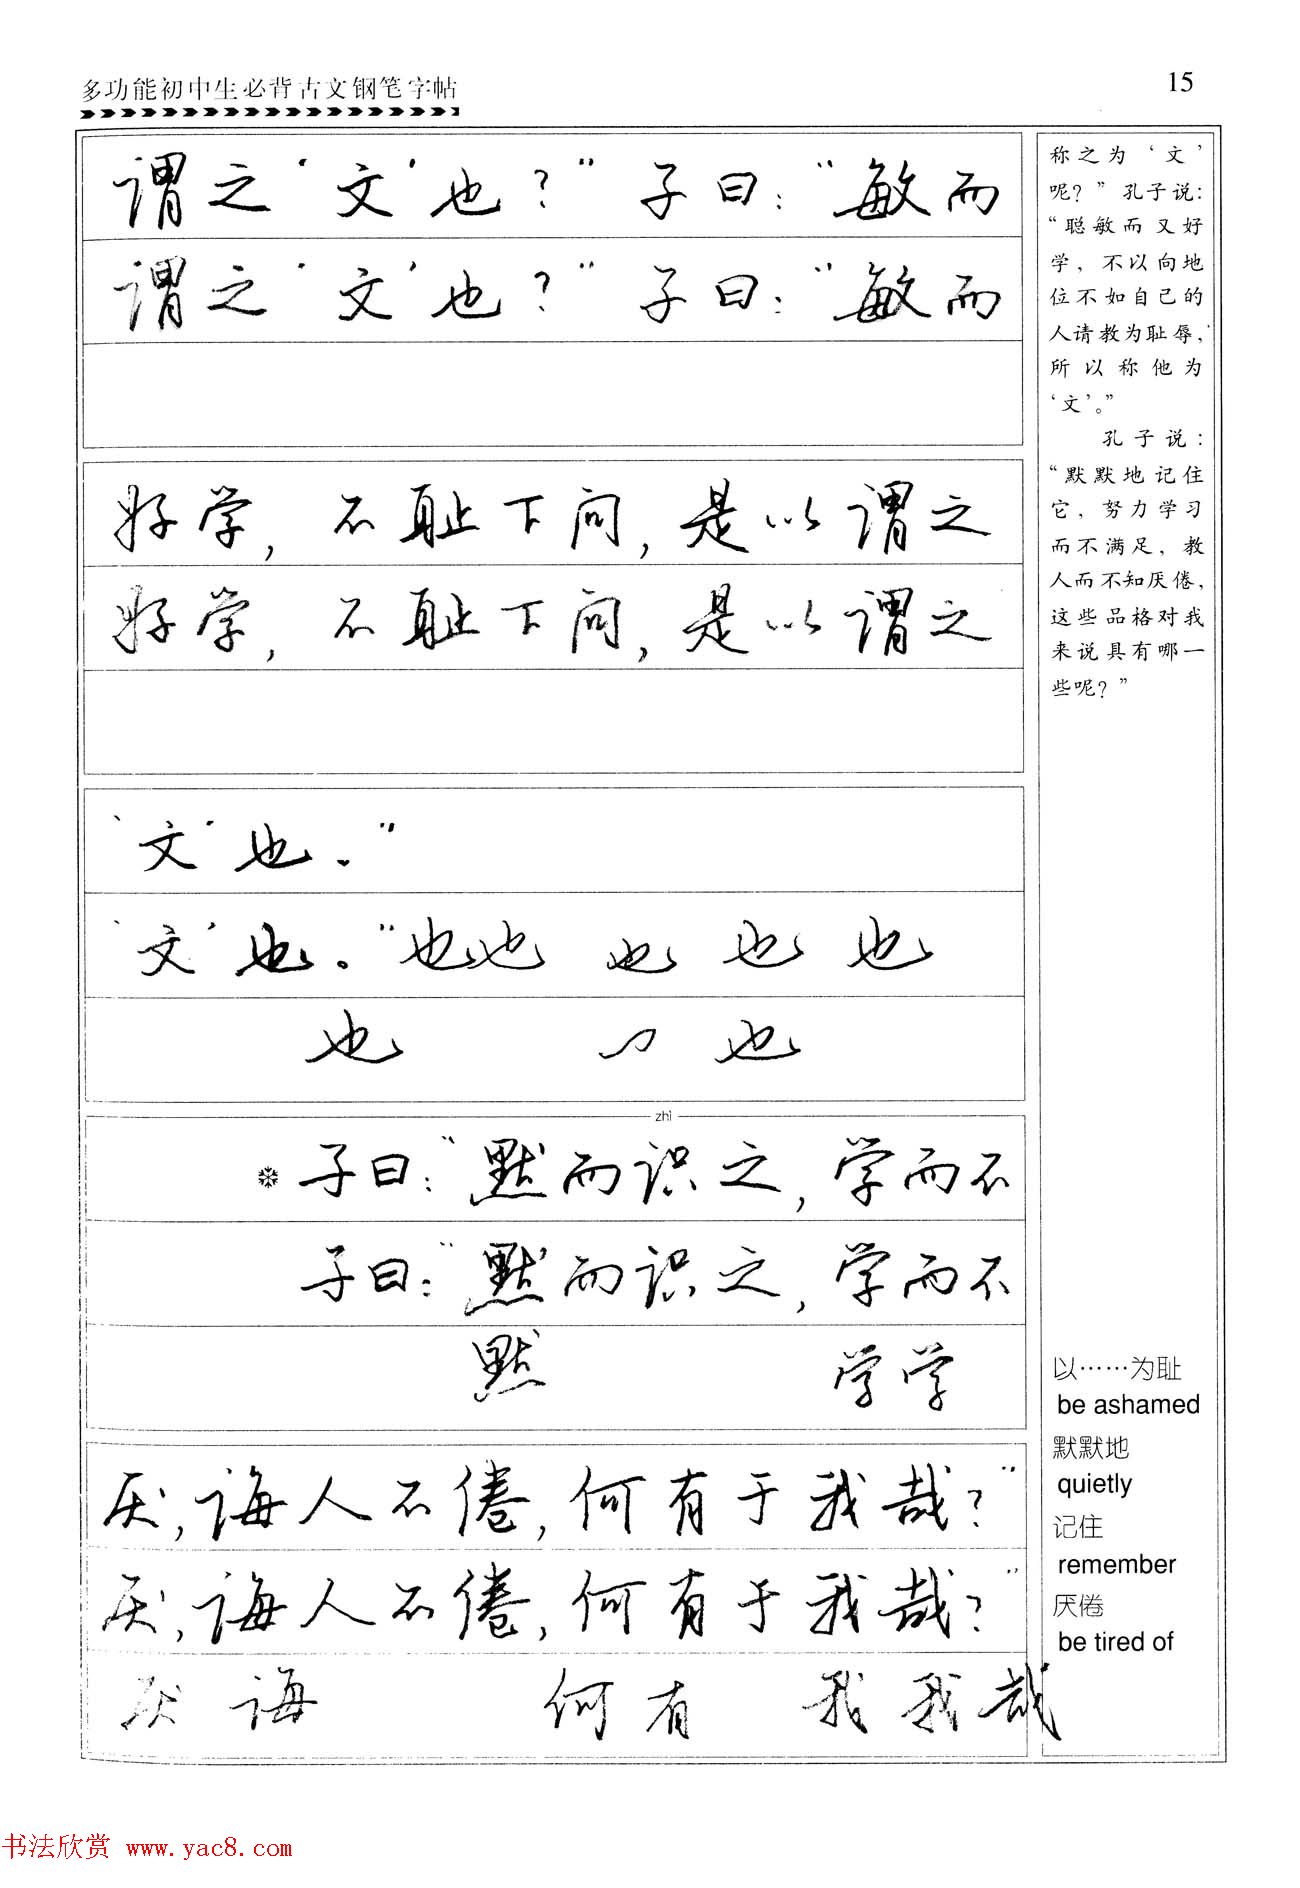 多功能初中生必背古文钢笔字帖
15
谓之‘文’也？”子曰：“敏而
谓之‘文’也？”子曰：“敏而
好学，不耻下问，是以谓之
好学，不耻下问，是以谓之
‘文’也。”
‘文’也。”也也也也也
也 也
zhì
子曰：“默而识之，学而不
子曰：“默而识之，学而不
默 学学
厌，诲人不倦，何有于我哉？”
厌，诲人不倦，何有于我哉？”
厌诲 何有 我我哉
称之为‘文’
呢？”孔子说：
“聪敏而又好
学，不以向地
位不如自己的
人请教为耻辱，
所以称他为
‘文’。”
孔子说：
“默默地记住
它，努力学习
而不满足，教
人而不知厌倦，
这些品格对我
来说具有哪一
些呢？”
以……为耻
be ashamed
默默地
quietly
记住
remember
厌倦
be tired of
书法欣赏 www.yac8.com